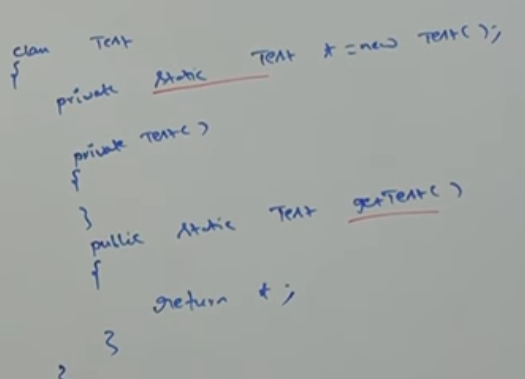 class Test
{
private static Test t = new Test();
private Test()
{
}
public static Test getTest()
{
return t;
}
}